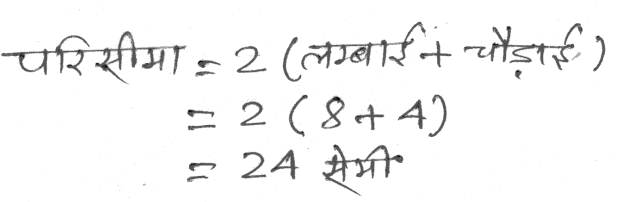 परिसीमा = 2 (लम्बाई + चौड़ाई)
= 2 (8+4)
= 24 सेमी